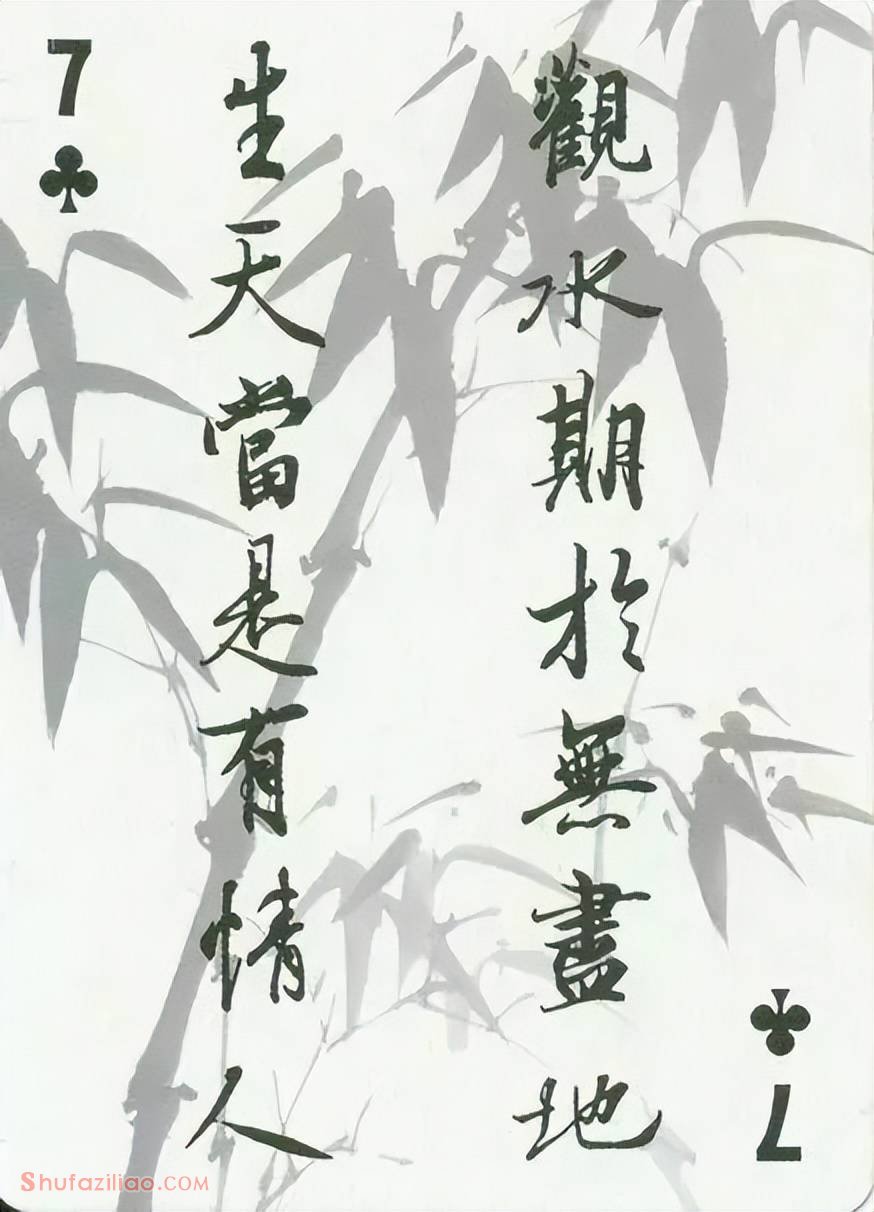 7
觀水期於無盡地
生天當是有情人
7
Shufaziliao.COM